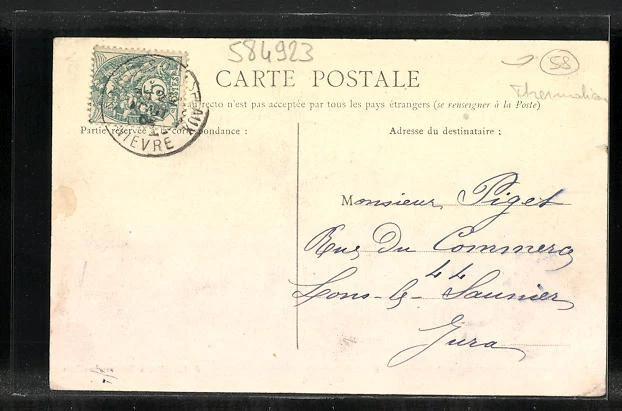 584923
58
CARTE POSTALE
recto n'est pas acceptée par tous les pays étrangers (se renseigner à la Poste)
Thermalisme
Partie réservée à la correspondance :
Adresse du destinataire :
NIÈVRE
Monsieur Piget
Rue Du Commerce
44
Lons-le-Saunier
Jura